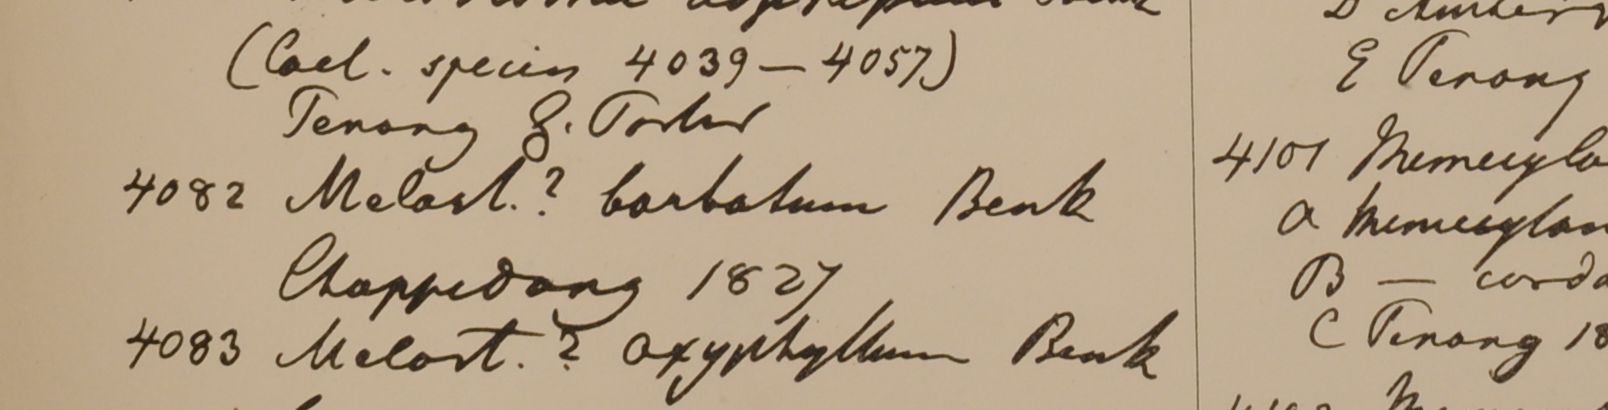 (Cael. species 4039 — 4057)
Penang G. Porter
4082 Melast.? barbatum Benth
Chappedong 1827
4083 Melast.? oxyphyllum Benth
E Penang
4101 Memecylo
a Memecylon
B — corda
C Penang 18